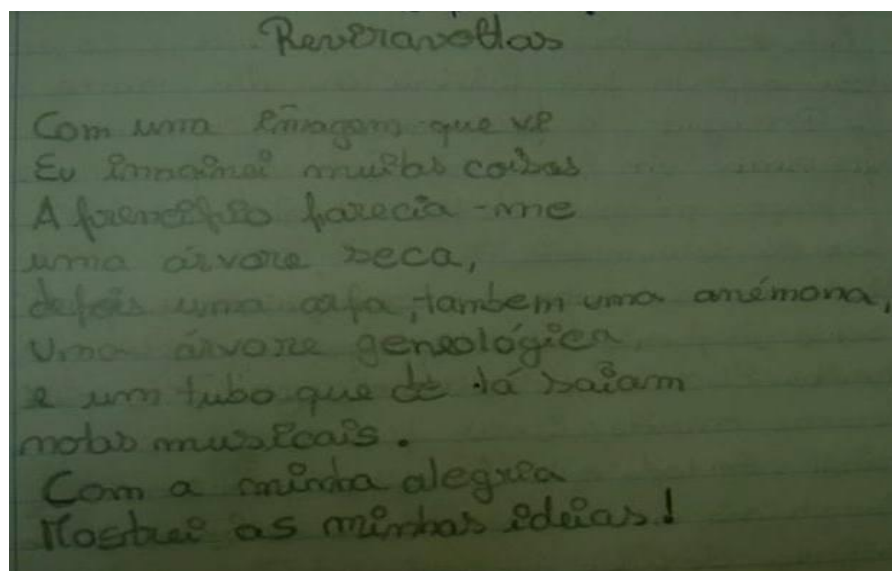 Reviravoltas
Com uma imagem que vi
Eu imaginei muitas coisas
A principio parecia-me
uma árvore seca,
depois uma capa, tambem uma anémona,
Uma árvore geneológica
e um tubo que de lá saiam
notas musicais.
Com a minha alegria
Mostrei as minhas ideias!